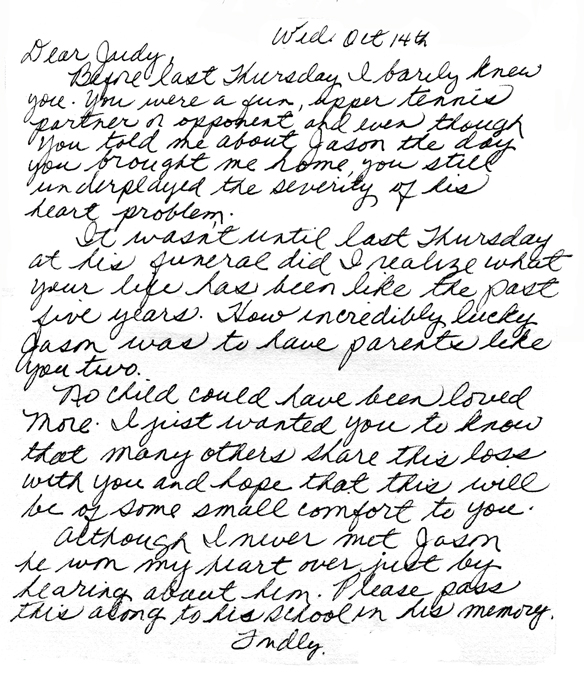 Wed. Oct 14th
Dear Judy,
Before last Thursday I barely knew
you. You were a fun, upper tennis
partner or opponent and even though
you told me about Jason the day
you brought me home, you still
underplayed the severity of his
heart problem.
It wasn't until last Thursday
at his funeral did I realize what
your life has been like the past
five years. How incredibly lucky
Jason was to have parents like
you two.
No child could have been loved
more. I just wanted you to know
that many others share this loss
with you and hope that this will
be of some small comfort to you.
Although I never met Jason
he won my heart over just by
hearing about him. Please pass
this along to his school in his memory.
Fndly.